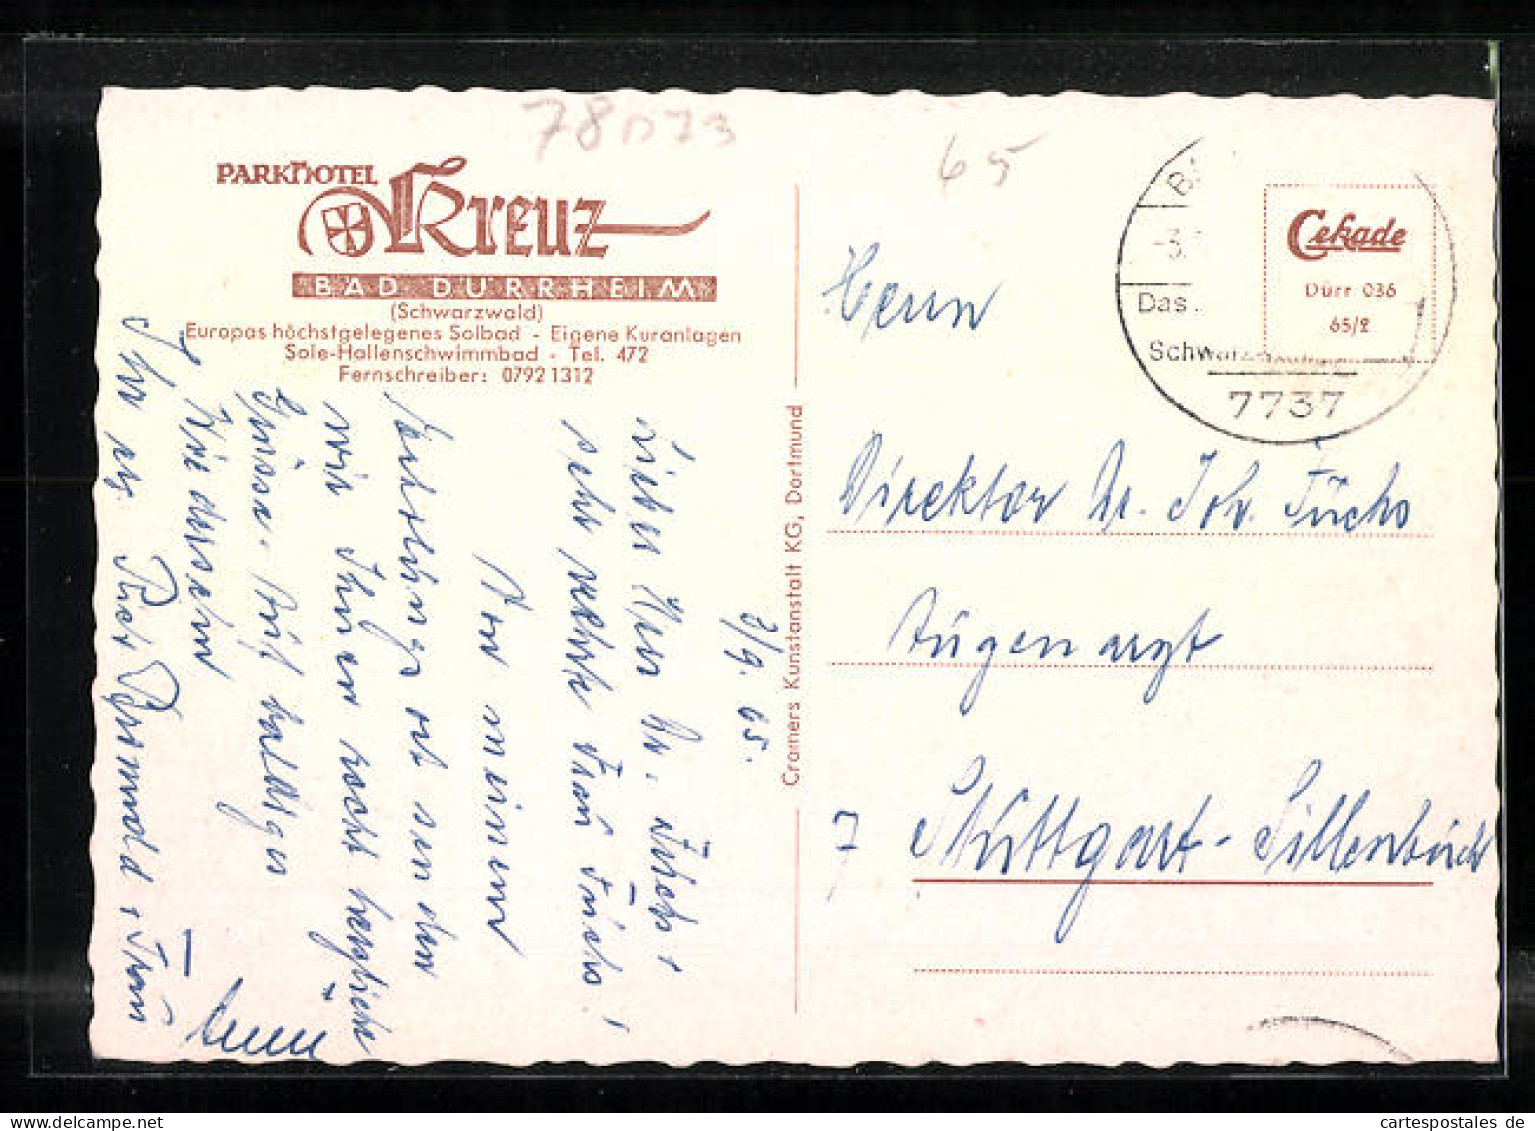 78073
65
PARKHOTEL
Kreuz
BAD DÜRRHEIM
(Schwarzwald)
Europas höchstgelegenes Solbad - Eigene Kuranlagen
Sole-Hallenschwimmbad - Tel. 472
Fernschreiber: 07921312
3/9. 65.
Lieber Herr Dr. Fuchs,
sehr geehrte Frau Fuchs!
Von meinem
Erholungsort senden
wir Ihnen recht herzliche
Grüsse. Auf baldiges
Wiedersehen
Ihr
Frau
Cramers Kunstanstalt KG, Dortmund
Das
Schwarz
7737
Cekade
Dürr 036
65/2
Herrn
Direktor Dr. Joh. Fuchs
Augenarzt
7 Stuttgart-Sillenbuch
cartespostales de